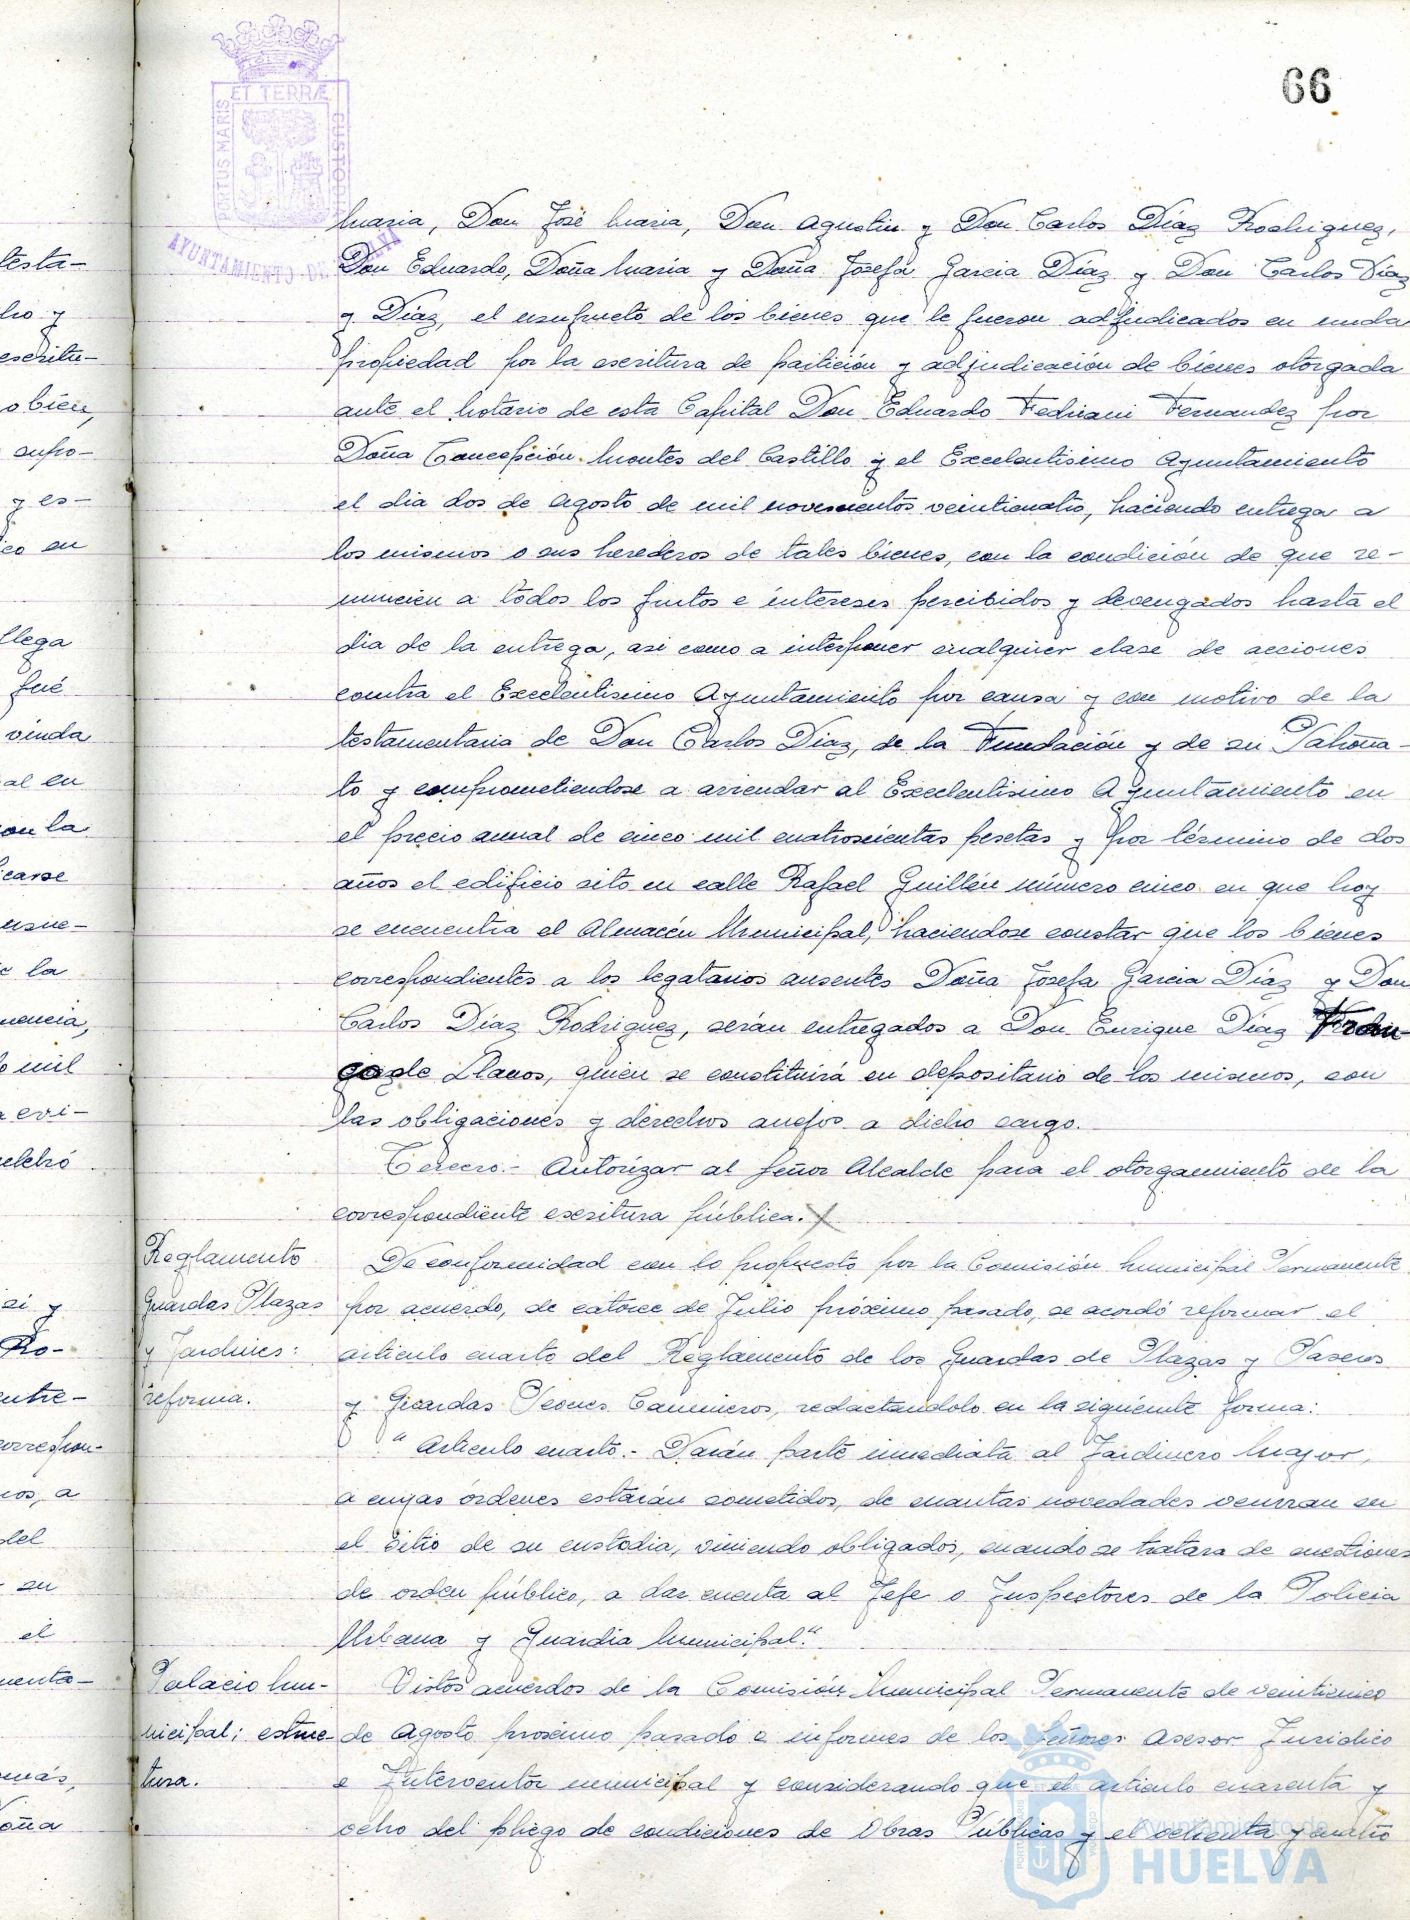 66
PORTUS MARIS ET TERRÆ CUSTODIA
AYUNTAMIENTO DE HUELVA
Maria, Don José Maria, Don Agustin y Don Carlos Díaz Rodriguez,
Don Eduardo, Doña María y Doña Josefa Garcia Díaz y Don Carlos Díaz
y Díaz, el usufructo de los bienes que le fueron adjudicados en nuda
propiedad por la escritura de partición y adjudicación de bienes otorgada
ante el Notario de esta Capital Don Eduardo Fedriani Fernandez por
Doña Concepción Montes del Castillo y el Excelentisimo Ayuntamiento
el dia dos de Agosto de mil novecientos veinticuatro, haciendo entrega a
los mismos o sus herederos de tales bienes, con la condición de que re-
nuncien a todos los frutos e intereses percibidos y devengados hasta el
dia de la entrega, asi como a interponer cualquier clase de acciones
contra el Excelentisimo Ayuntamiento por causa y con motivo de la
testamentaria de Don Carlos Diaz, de la Fundación y de su Patrona-
to y comprometiendose a arrendar al Excelentisimo Ayuntamiento en
el precio anual de cinco mil cuatrocientas pesetas y por término de dos
años el edificio sito en calle Rafael Guillén número cinco en que hoy
se encuentra el Almacén Municipal, haciendose constar que los bienes
correspondientes a los legatarios ausentes Doña Josefa Garcia Díaz y Don
Carlos Díaz Rodriguez, serán entregados a Don Enrique Díaz
de Llanos, quien se constituirá en depositario de los mismos, con
las obligaciones y derechos anejos a dicho cargo.
Tercero.- Autorizar al Señor Alcalde para el otorgamiento de la
correspondiente escritura pública. X
Reglamento
Guardas Plazas
y Jardines:
reforma.
De conformidad con lo propuesto por la Comisión Municipal Permanente
por acuerdo, de catorce de Julio próximo pasado, se acordó reformar el
articulo cuarto del Reglamento de los Guardas de Plazas y Paseos
y Guardas Peones Camineros, redactandolo en la siguiente forma:
"Articulo cuarto.- Darán parte inmediata al Jardinero Mayor,
a cuyas órdenes estarán sometidos, de cuantas novedades ocurran en
el sitio de su custodia, viniendo obligados, cuando se tratara de cuestiones
de orden público, a dar cuenta al Jefe o Inspectores de la Policia
Urbana y Guardia Municipal."
Palacio Mu-
nicipal; estruc-
tura.
Vistos acuerdos de la Comisión Municipal Permanente de veinticinco
de Agosto proximo pasado e informes de los Señores Asesor Juridico
e Interventor municipal y considerando que el articulo cuarenta y
ocho del pliego de condiciones de Obras Públicas y el ochenta y cuatro
testa-
y
escritu-
o bien,
supo-
y es-
co en
llega
fué
viuda
al en
con la
carse
usu-
la
mil
evi-
celebró
si y
Ro-
entre-
correspon-
ros, a
del
su
el
más,
Doña
Ayuntamiento de
HUELVA